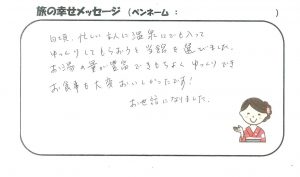 旅の幸せメッセージ (ペンネーム： )
日頃、忙しい主人に温泉にでも入って
ゆっくりしてもらおうと当館を選びました。
お湯の量が豊富できもちよくゆっくりでき
お食事も大変おいしかったです!
お世話になりました。